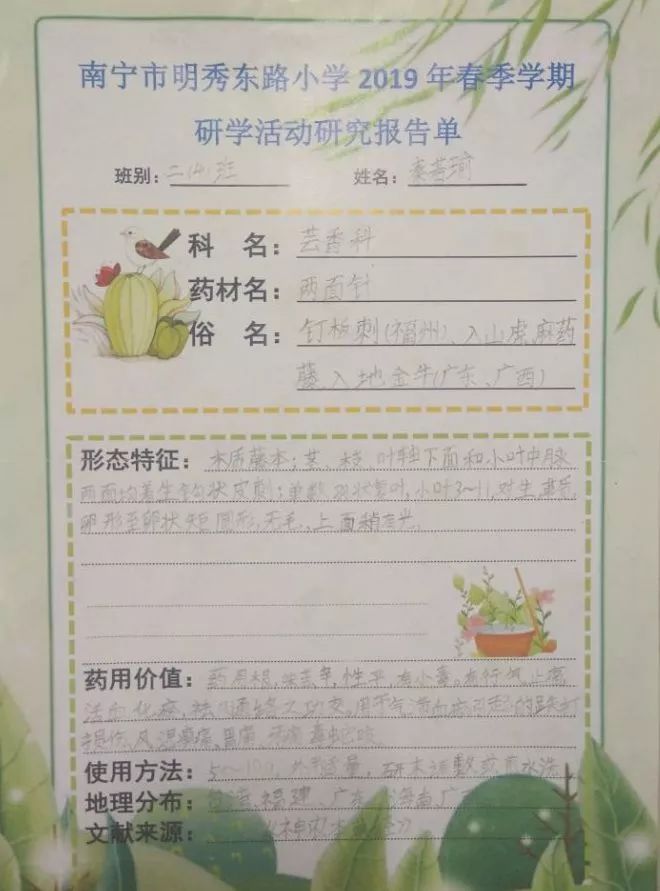 南宁市明秀东路小学2019年春季学期
研学活动研究报告单
班别: 二(4)班 姓名: 秦若瑜
科 名: 芸香科
药材名: 两面针
俗 名: 钉板刺(福州)、入山虎、麻药
藤、入地金牛(广东、广西)
形态特征: 木质藤本;茎、枝、叶轴下面和小叶中脉
两面均着生钩状皮刺;单数羽状复叶,小叶3~11,对生,革质,
卵形至卵状矩圆形,无毛,上面稍有光
药用价值: 药用根,味苦辛,性平,有小毒。有行气止痛
活血化瘀,祛风通络之功效。用于气滞血瘀引起的跌打
损伤、风湿痹痛、胃痛、牙痛、毒蛇咬
使用方法: 5~10g,外用适量,研末调敷或煎水洗
地理分布: 台湾、福建、广东、海南、广西
文献来源: